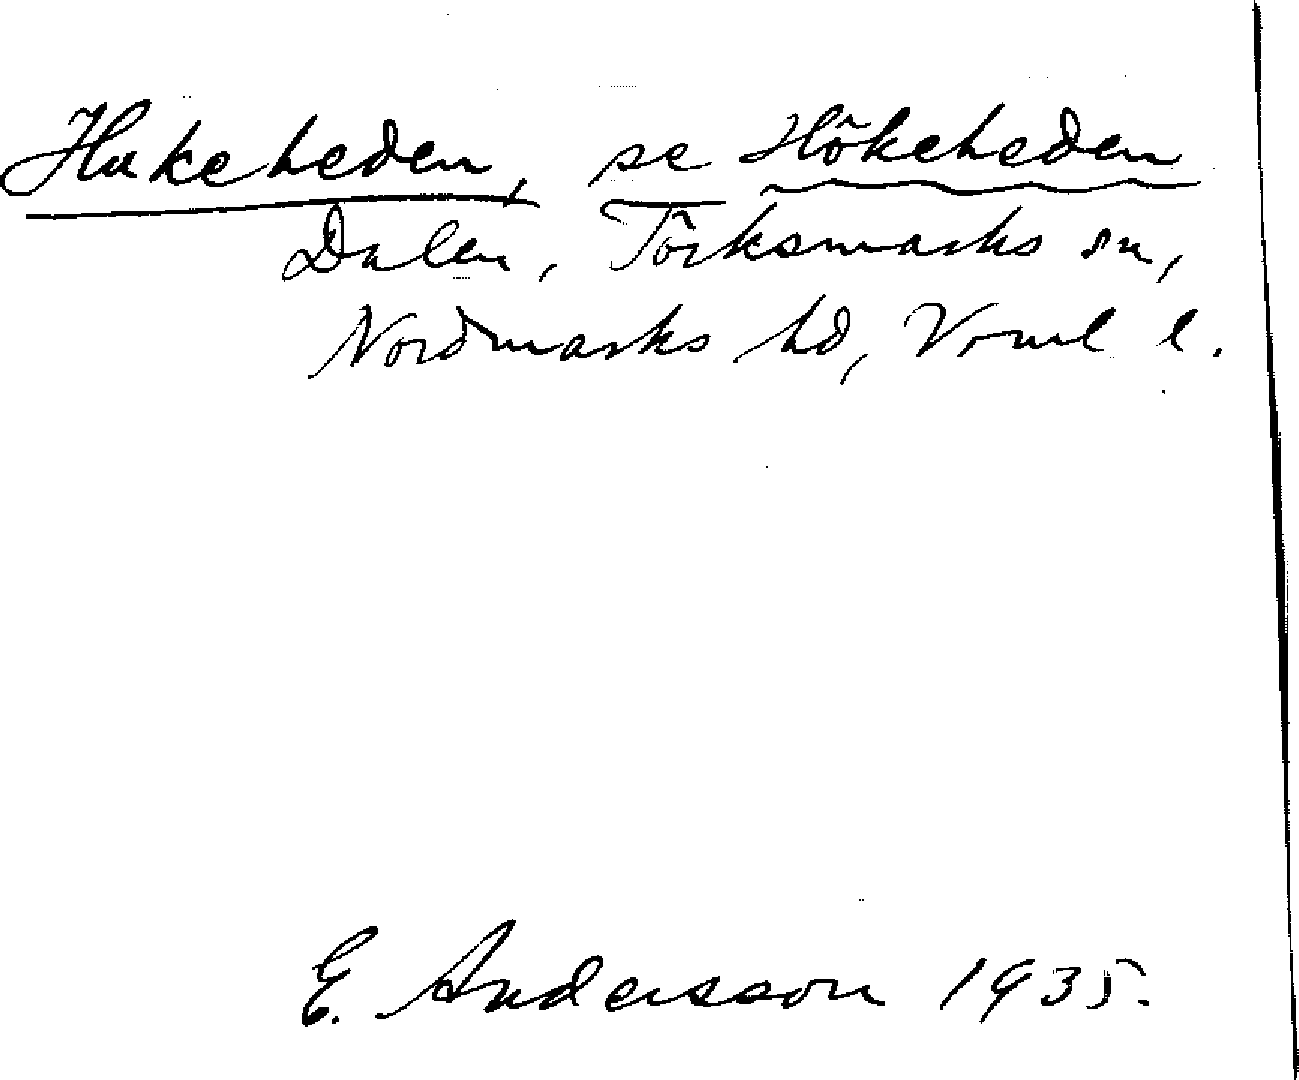 Hukeheden, se Hökeheden
Dalen, Törksmarks sn,
Nordmarks hd, Vrml l.
E. Andersson 1935.